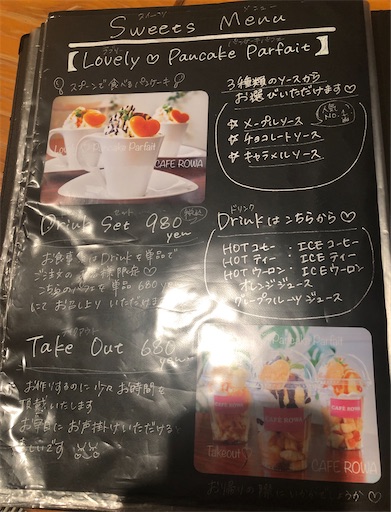 スイーツ メニュー
Sweets Menu
ラブリー パンケーキパフェ
【Lovely♡Pancake Parfait】
スプーンで食べるパンケーキ
3種類のソースから
お選びいただけます♡
人気
NO.1
☆メープルソース
☆チョコレートソース
☆キャラメルソース
Pancake Parfait
CAFE ROWA
セット
Drink Set 980 yen
税込
お食事後はDrinkを単品で
ご注文の
こちらのパフェを単品680yen
にてお召し上りいただけます
ドリンク
Drinkはこちらから♡
HOTコーヒー・ICEコーヒー
HOTティー・ICEティー
HOTウーロン・ICEウーロン
オレンジジュース
グレープフルーツジュース
テイクアウト
Take Out 680 yen
お作りするのに少々お時間を
頂戴いたします
お早目にお声掛けいただけると
幸いです
Pancake Parfait
CAFE ROWA
CAFE ROWA
Takeout
CAFE ROWA
お帰りの際にいかがでしょうか♡